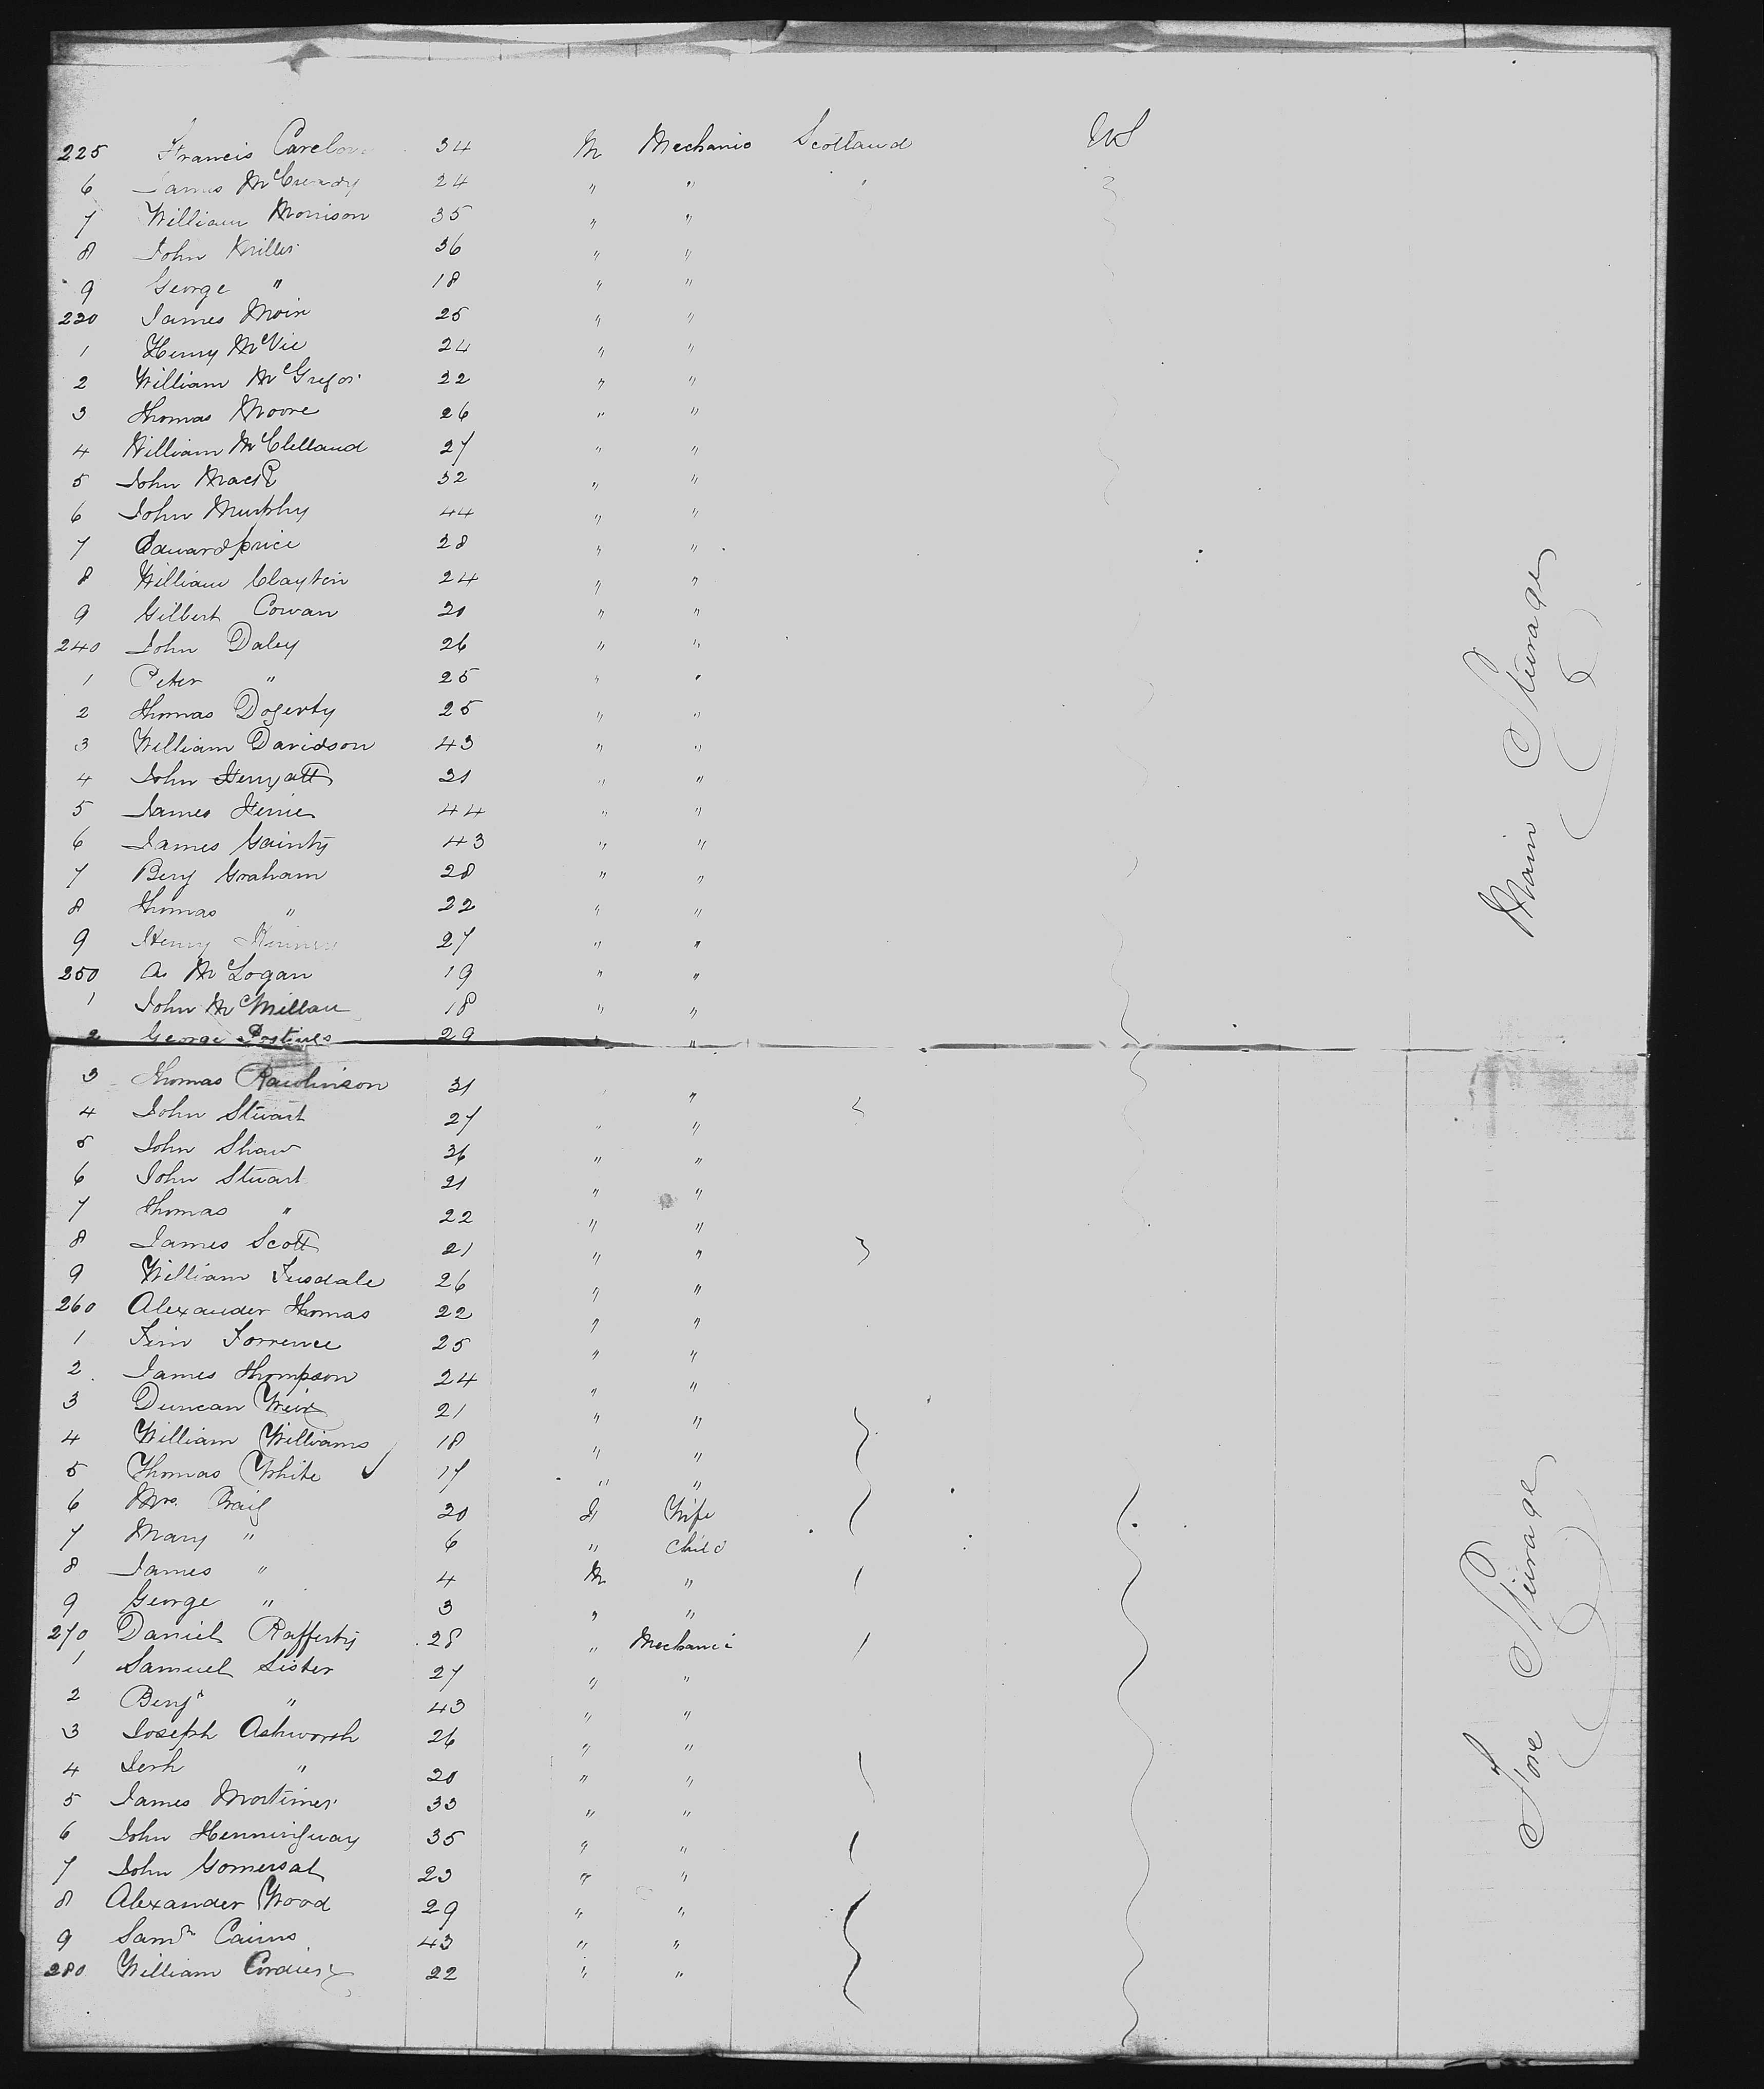 225 Francis 34 M Mechanic Scotland US
6 James McCready 24 " " "
7 William Morrison 35 " "
8 John Miller 36 " "
9 George " 18 " "
230 James Moir 25 " "
1 Henry McVie 24 " "
2 William McGregor 22 " "
3 Thomas Moore 26 " "
4 William McClelland 27 " "
5 John 32 " "
6 John Murphy 44 " "
7 Edward price 28 " "
8 William Clayton 24 " "
9 Gilbert Cowan 20 " "
240 John Daley 26 " "
1 Peter " 25 " "
2 Thomas Dogerty 25 " "
3 William Davidson 43 " "
4 John 21 " "
5 James 44 " "
6 James Gainty 43 " "
7 Benj Graham 28 " "
8 Thomas " 22 " "
9 Henry 27 " "
250 A. McLogan 19 " "
1 John McMillan 18 " "
2 George 29 " "
3 Thomas Rawlinson 31 "
4 John Stuart 27 " "
5 John Shaw 36 " "
6 John Stuart 21 " "
7 Thomas " 22 " "
8 James Scott 21 " "
9 William Tusdale 26 " "
260 Alexander Thomas 22 " "
1 Torrence 25 " "
2 James Thompson 24 " "
3 Duncan Weir 21 " "
4 William Williams 18 " "
5 Thomas White 17 " "
6 Mrs. Craig 30 F Wife
7 Mary " 6 " Child
8 James " 4 M "
9 George " 3 " "
270 Daniel Rafferty 28 " Mechanic
1 Samuel Lister 27 " "
2 Benj " 43 " "
3 Joseph Ashworth 26 " "
4 " 20 " "
5 James Mortimer 33 " "
6 John Henningway 35 " "
7 John Gomersal 23 " "
8 Alexander Wood 29 " "
9 Saml Cairns 43 " "
280 William 22 " "
Main Steerage
Fore Steerage